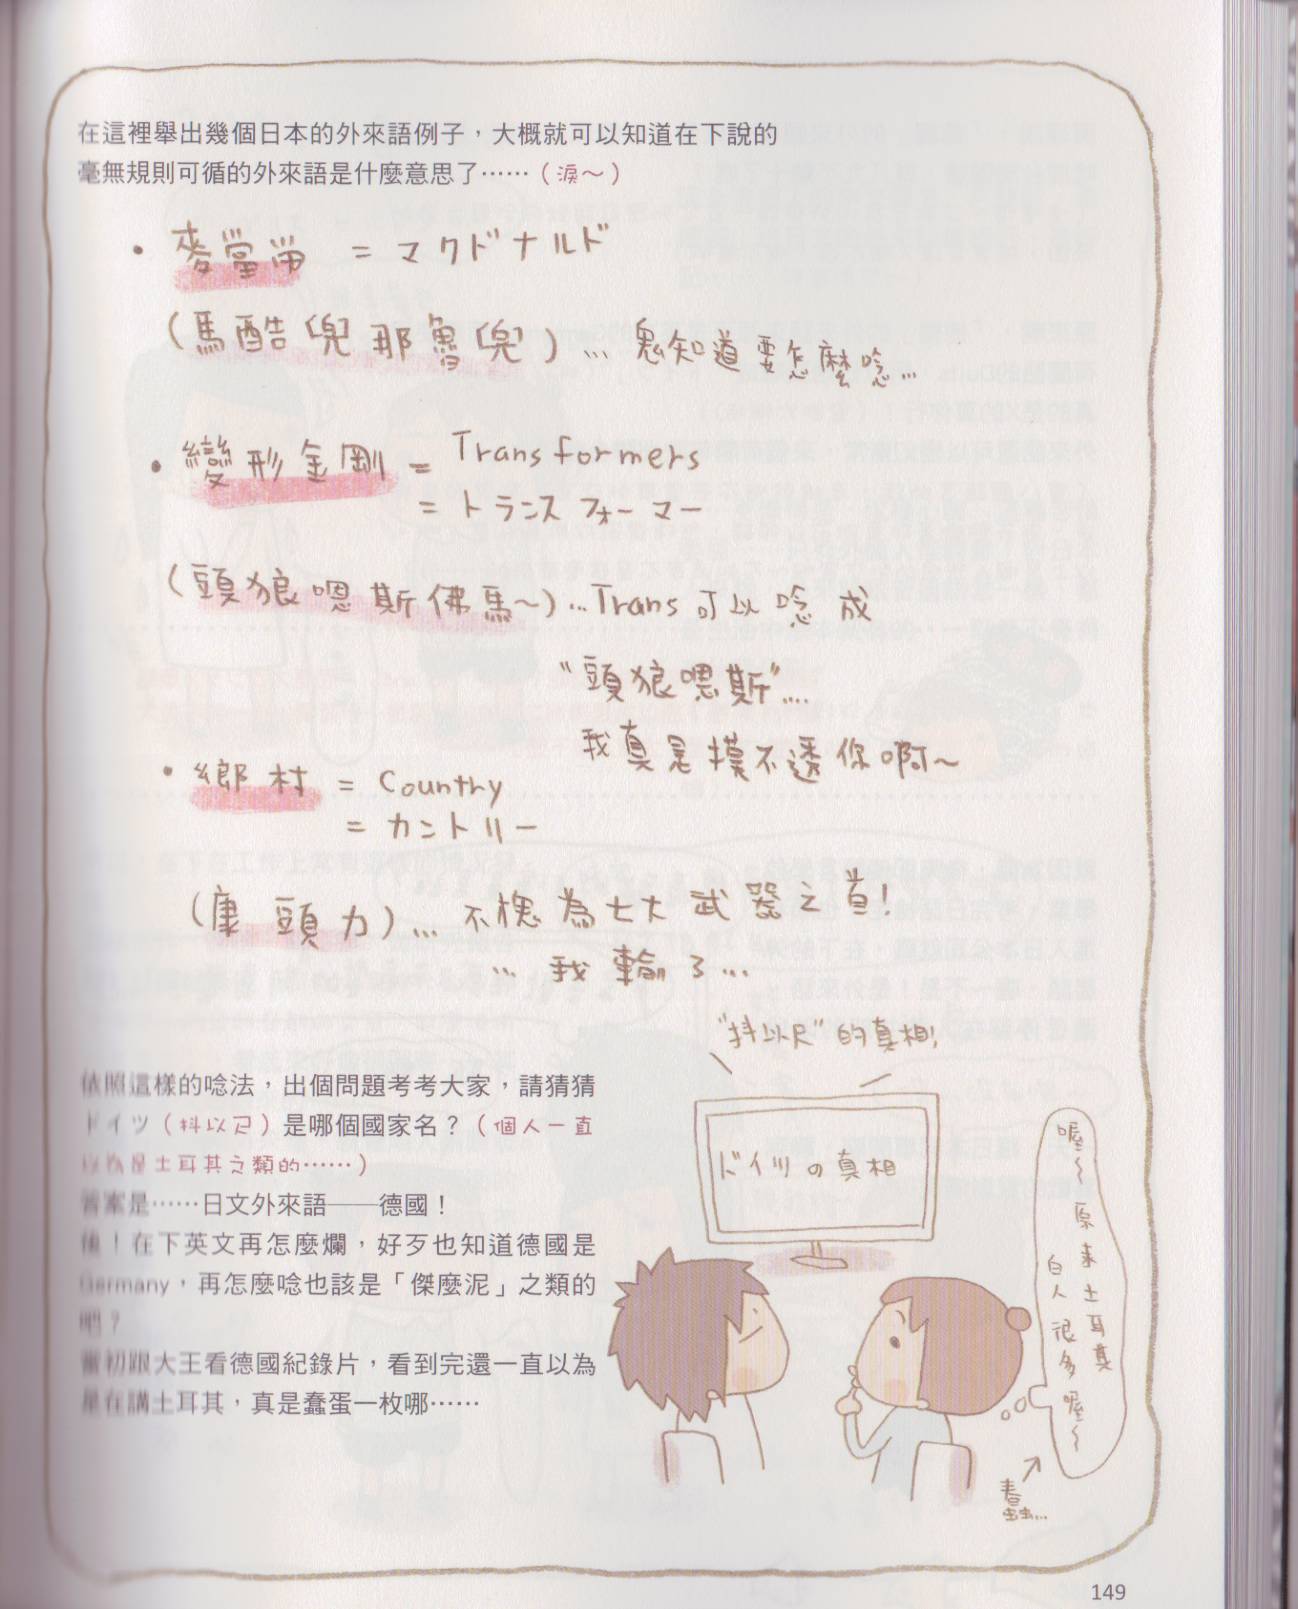 在這裡舉出幾個日本的外來語例子，大概就可以知道在下說的
毫無規則可循的外來語是什麼意思了……（淚～）
• 麥當勞 = マクドナルド
(馬酷兜那魯兜)... 鬼知道要怎麼唸...
• 變形金剛 = Transformers
= トランスフォーマー
(頭狼嗯斯佛馬~)...Trans可以唸成
"頭狼嗯斯"....
我真是摸不透你啊~
• 鄉村 = Country
= カントリー
(康頭力)... 不愧為七大武器之首!
... 我輸了...
"抖以尺"的真相!
依照這樣的唸法，出個問題考考大家，請猜猜
ドイツ（抖以尺）是哪個國家名？（個人一直
以為是土耳其之類的……）
答案是……日文外來語——德國！
後！在下英文再怎麼爛，好歹也知道德國是
Germany，再怎麼唸也該是「傑麼泥」之類的
吧？
當初跟大王看德國紀錄片，看到完還一直以為
是在講土耳其，真是蠢蛋一枚哪……
ドイツの真相
喔~原來土耳其
白人很多喔~
蠢...
149